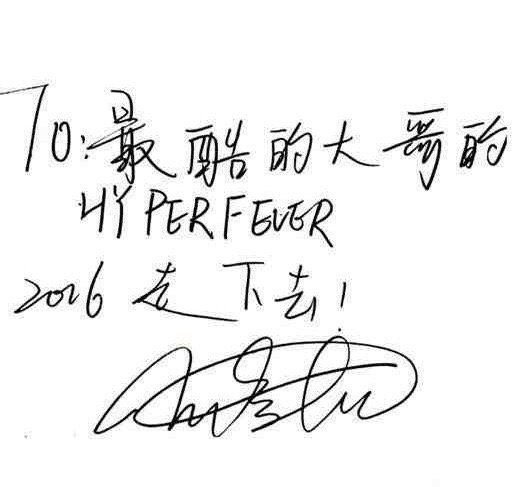 TO:最酷的大哥的
HYPERFEVER
2016 走下去!